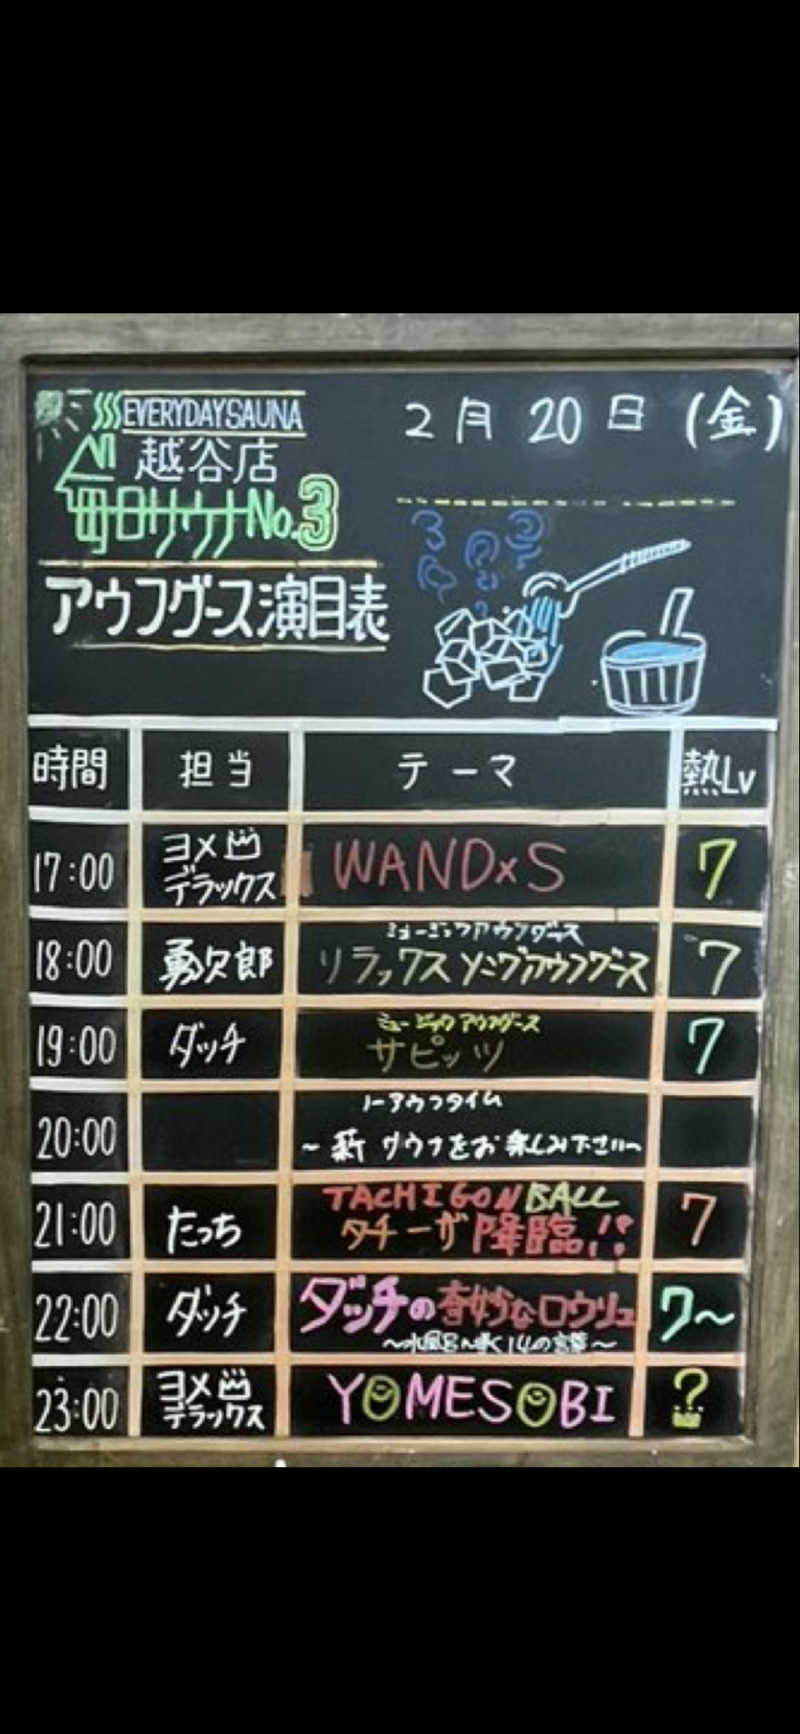 EVERYDAYSAUNA
2月20日(金)
越谷店
毎日サウナNo.3
アウフグース演目表
時間 担当 テーマ 熱Lv
17:00 ヨメ デラックス WAND×S 7
ミュージックアウフグース
18:00 勇次郎 リラックスソングアウフグース 7
ミュージックアウフグース
19:00 ダッチ サピッツ 7
ノーアウフタイム
20:00 ~薪サウナをお楽しみ下さい~
TACHIGONBALL
21:00 たっち タチーザ降臨!! 7
22:00 ダッチ ダッチの奇妙なロウリュ 7~
~水風呂へ導く14の言葉~
23:00 ヨメ デラックス YOMESOBI ?